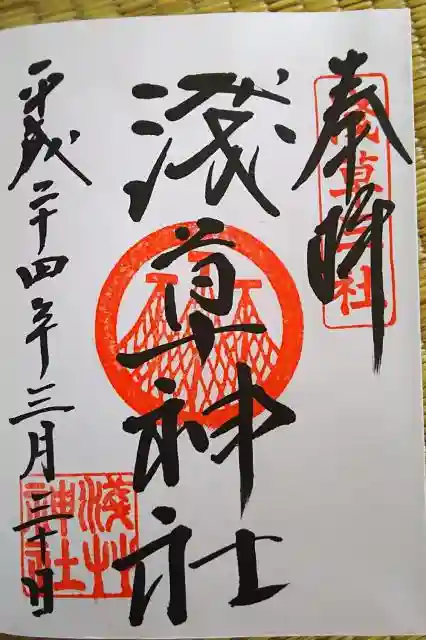 奉拝
淺草神社
淺草神社
平成二十四年三月三十日
淺艸
神社